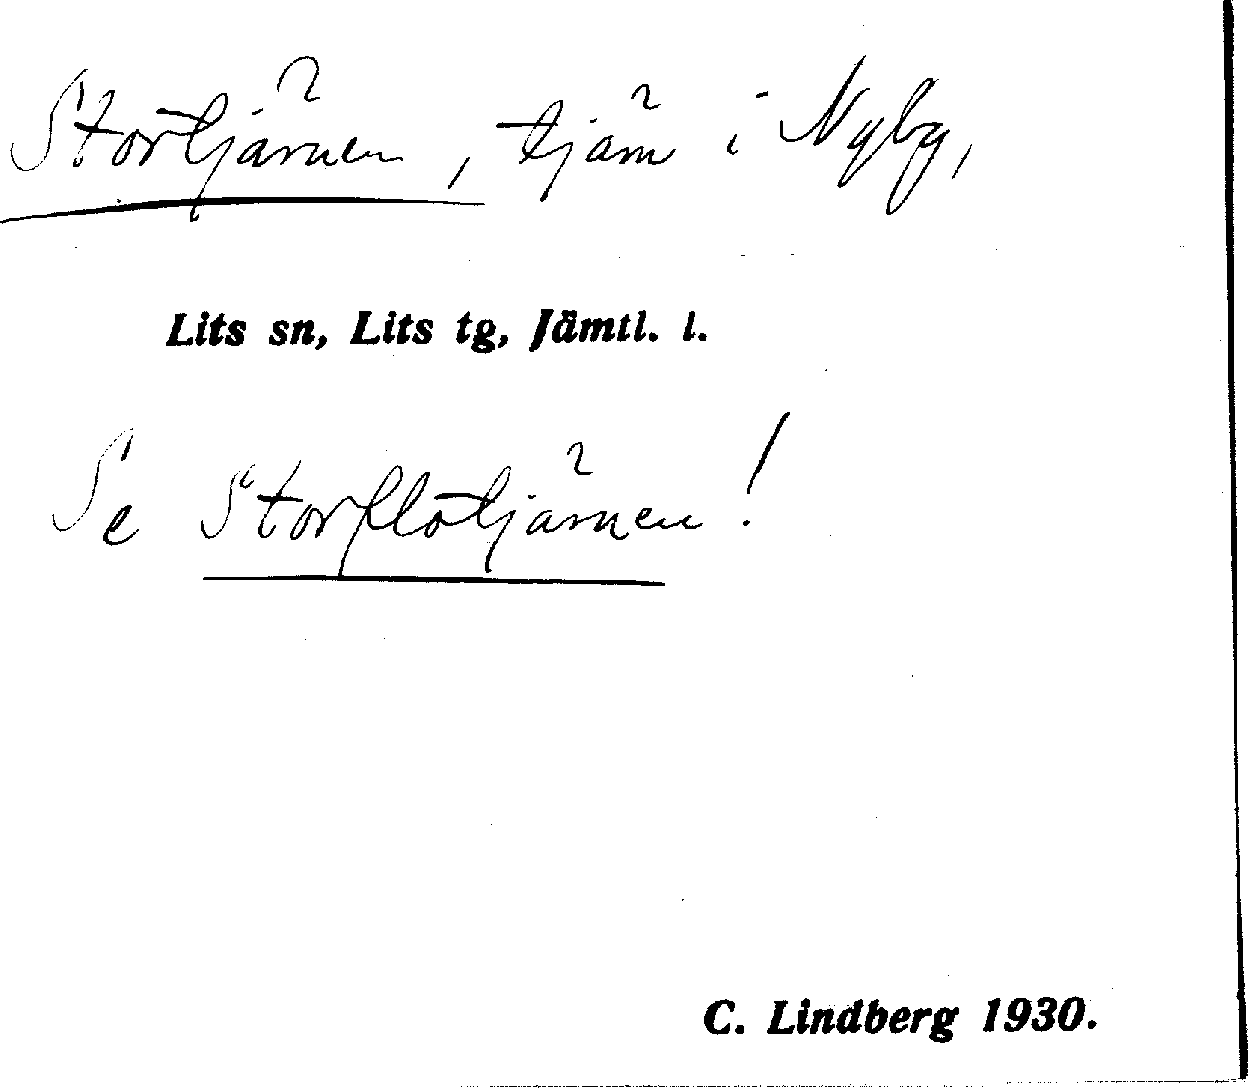 Stortjärnen, tjärn i Nyby,
Lits sn, Lits tg, Jämtl. l.
Se Storflotjärnen!
C. Lindberg 1930.